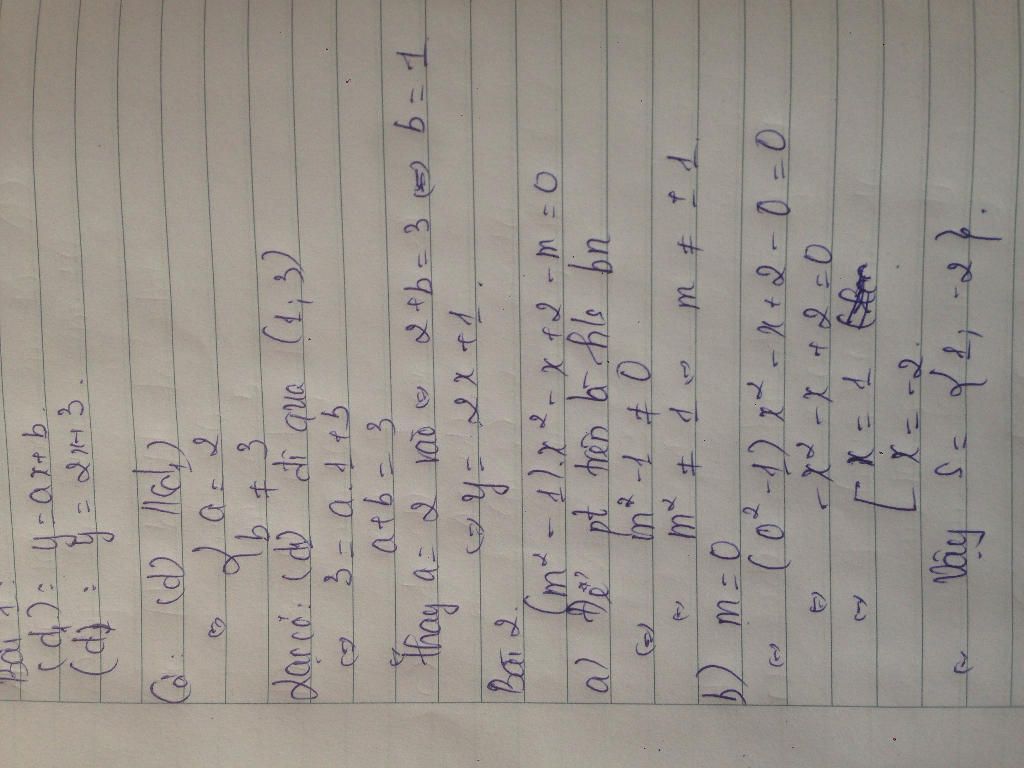 Bài 1:
(d₁): y = ax+b
(d): y = 2x+3.
Có: (d) // (d₁)
⇔ { a = 2
b ≠ 3
Lại có: (d) đi qua (1; 3)
⇔ 3 = a.1+b
a+b = 3
Thay a = 2 vào ⇔ 2+b = 3 ⇔ b = 1
⇔ y = 2x+1.
Bài 2.
(m² - 1).x² - x + 2 - m = 0
a) Để pt trên là hs bn
⇔ m² - 1 ≠ 0
⇔ m² ≠ 1 ⇔ m ≠ ± 1
b) m = 0
⇔ (0² - 1) x² - x + 2 - 0 = 0
⇔ -x² - x + 2 = 0
⇔ [ x = 1
x = -2.
⇔ Vậy S = { 1, -2 }.